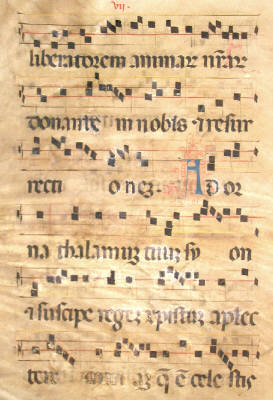 vij.
liberatorem animar nr̄ar
donante in nobis ⁊ resur
recti onez A dor
na thalamuz tuuz sy on
⁊ suscipe regez xpistuz aplec
tere ar q̄ ē cele stis